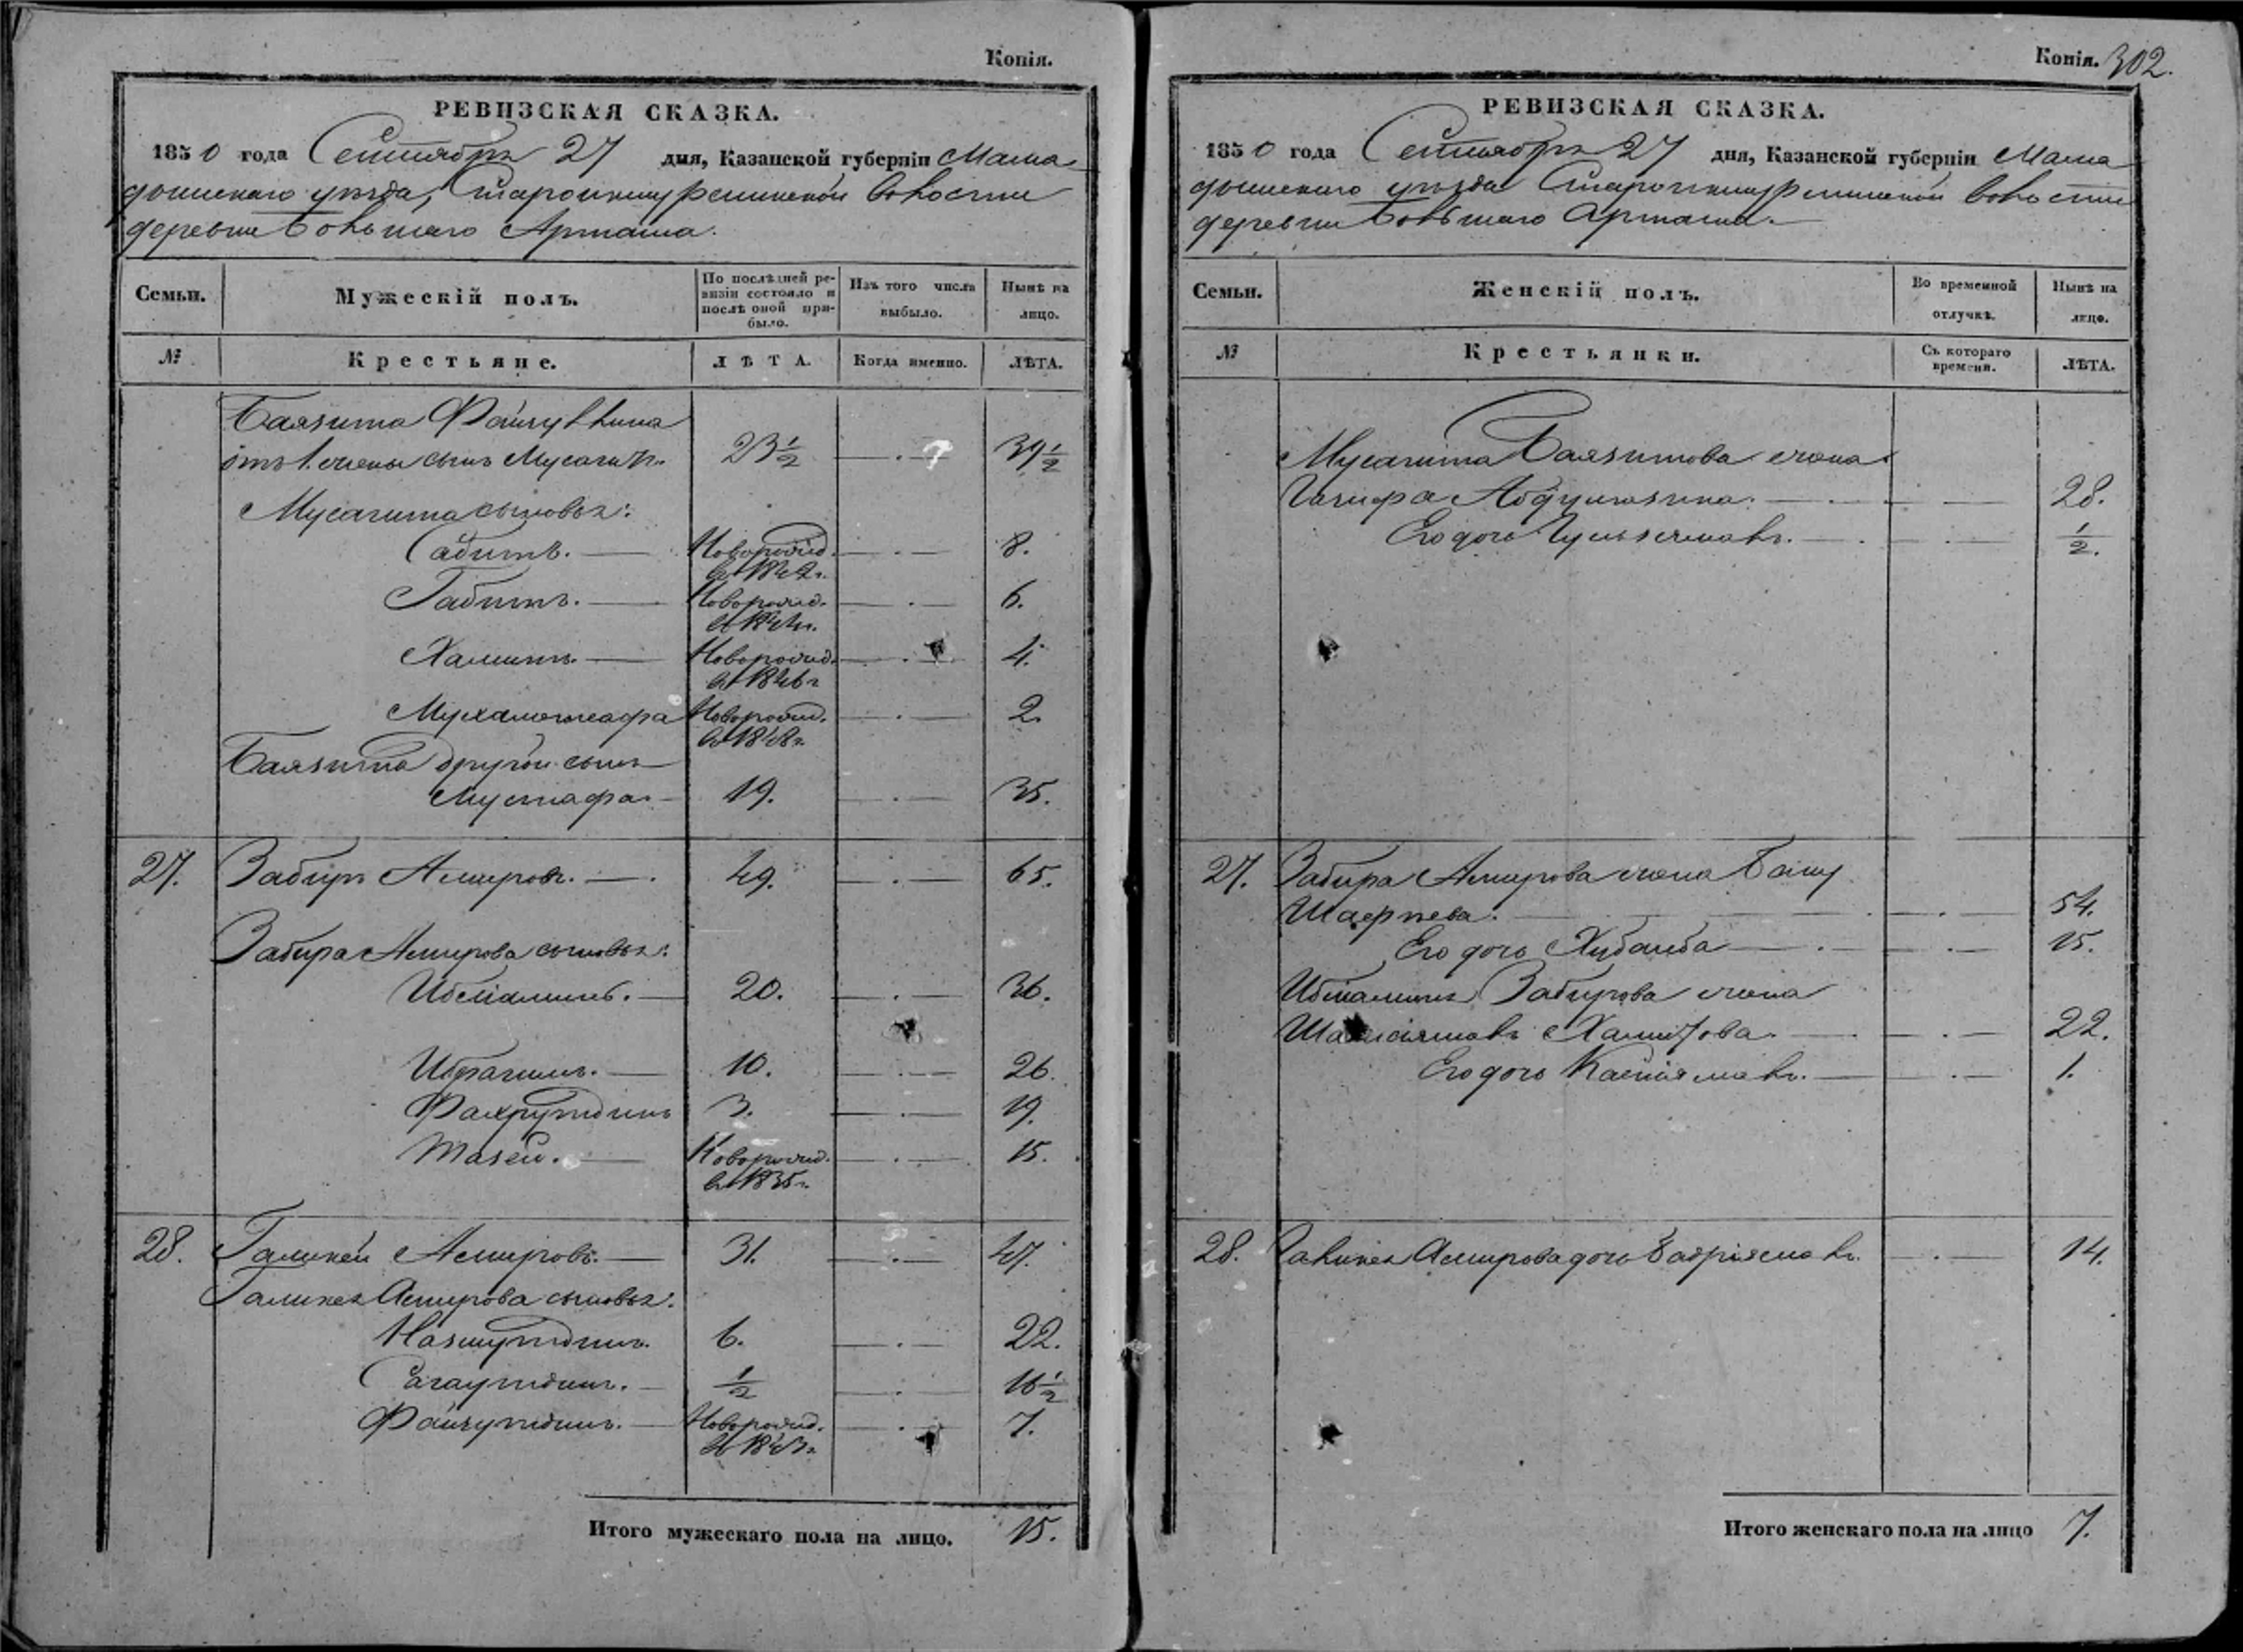 Копія.
РЕВИЗСКАЯ СКАЗКА.
1850 года Сентября 27 дня, Казанской губерніи Мама-
дышскаго уѣзда, волости
деревни Большаго Арташа.
Семьи.
Мужескій полъ.
По послѣдней ре-
визіи состояло и
послѣ оной при-
было.
Изъ того числа
выбыло.
Нынѣ на
лицо.
№
Крестьяне.
ЛѢТА.
Когда именно.
ЛѢТА.
Баязита Файзуллина
отъ 1. жены сынъ 23 1/2 39 1/2
Мусагита сыновья:
Сабитъ. Новорожд. 8.
въ 1842г.
Габитъ. Новорожд. 6.
въ 1844г.
Хамитъ. Новорожд. 4.
въ 1846г
Новорожд. 2.
въ 1848г.
Баязита другой сынъ
Мустафа. 19. 35.
27. Забиръ Амировъ. 49. 65.
Забира Амирова сыновья:
Ибніаминъ. 20. 36.
Ибрагимъ. 10. 26.
Фахрутдинъ 3. 19.
Тазей. Новорожд. 15.
въ 1835г.
28. Галикей Амировъ. 31. 47.
Галикея Амирова сыновья:
Назмутдинъ. 6. 22.
Сагаутдинъ. 1/2 16 1/2
Файзутдинъ. Новорожд. 7.
въ 1843г.
Итого мужескаго пола на лицо. 15.
Копія. 302.
РЕВИЗСКАЯ СКАЗКА.
1850 года Сентября 27 дня, Казанской губерніи Мама
дышскаго уѣзда волости
деревни Большаго Арташа.
Семьи.
Женскій полъ.
Во временной
отлучкѣ.
Нынѣ на
лицо.
№
Крестьянки.
Съ котораго
времени.
ЛѢТА.
Мусагита Баязитова жена
28.
Его дочь 1/2.
27. Забира Амирова жена
54.
Его дочь Хубайба 15.
Ибніамина Забирова жена
Хамитова. 22.
Его дочь 1.
28. Галикея Амирова дочь 14.
Итого женскаго пола на лицо 7.